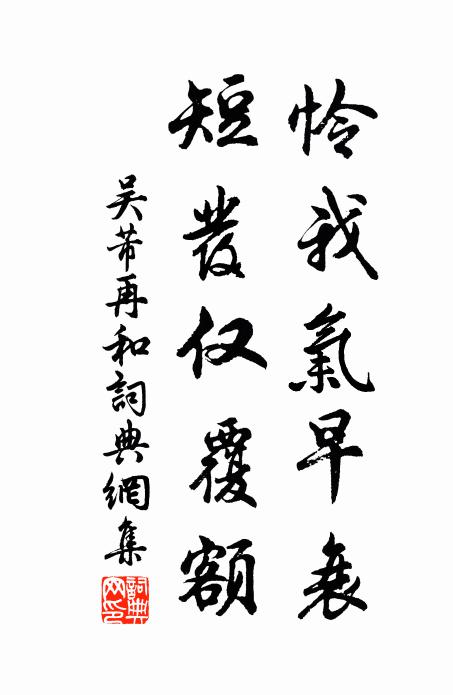 怜我氣早衰
短發仅覆額
吴芾再和詞典網集
詞典网印